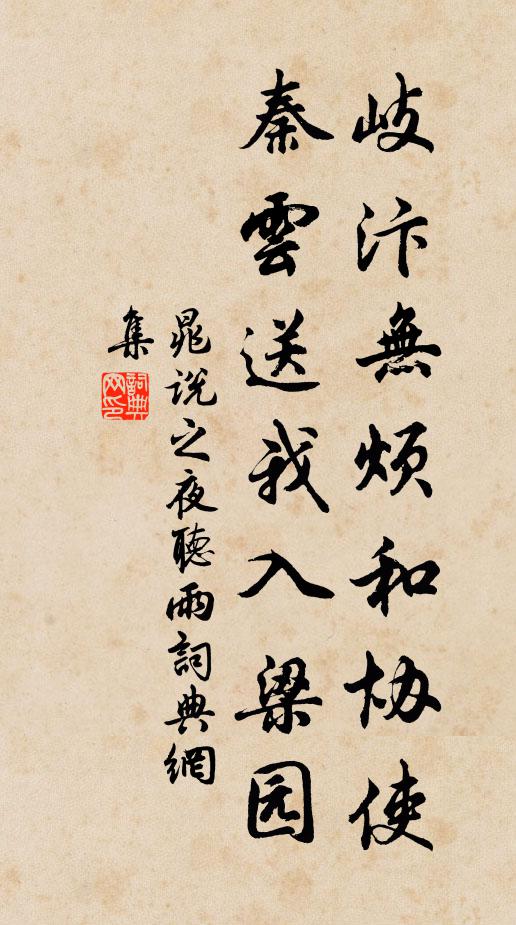 岐汴無烦和协使
秦雲送我入梁园
晁说之夜聽雨詞典網
集
詞典
网印